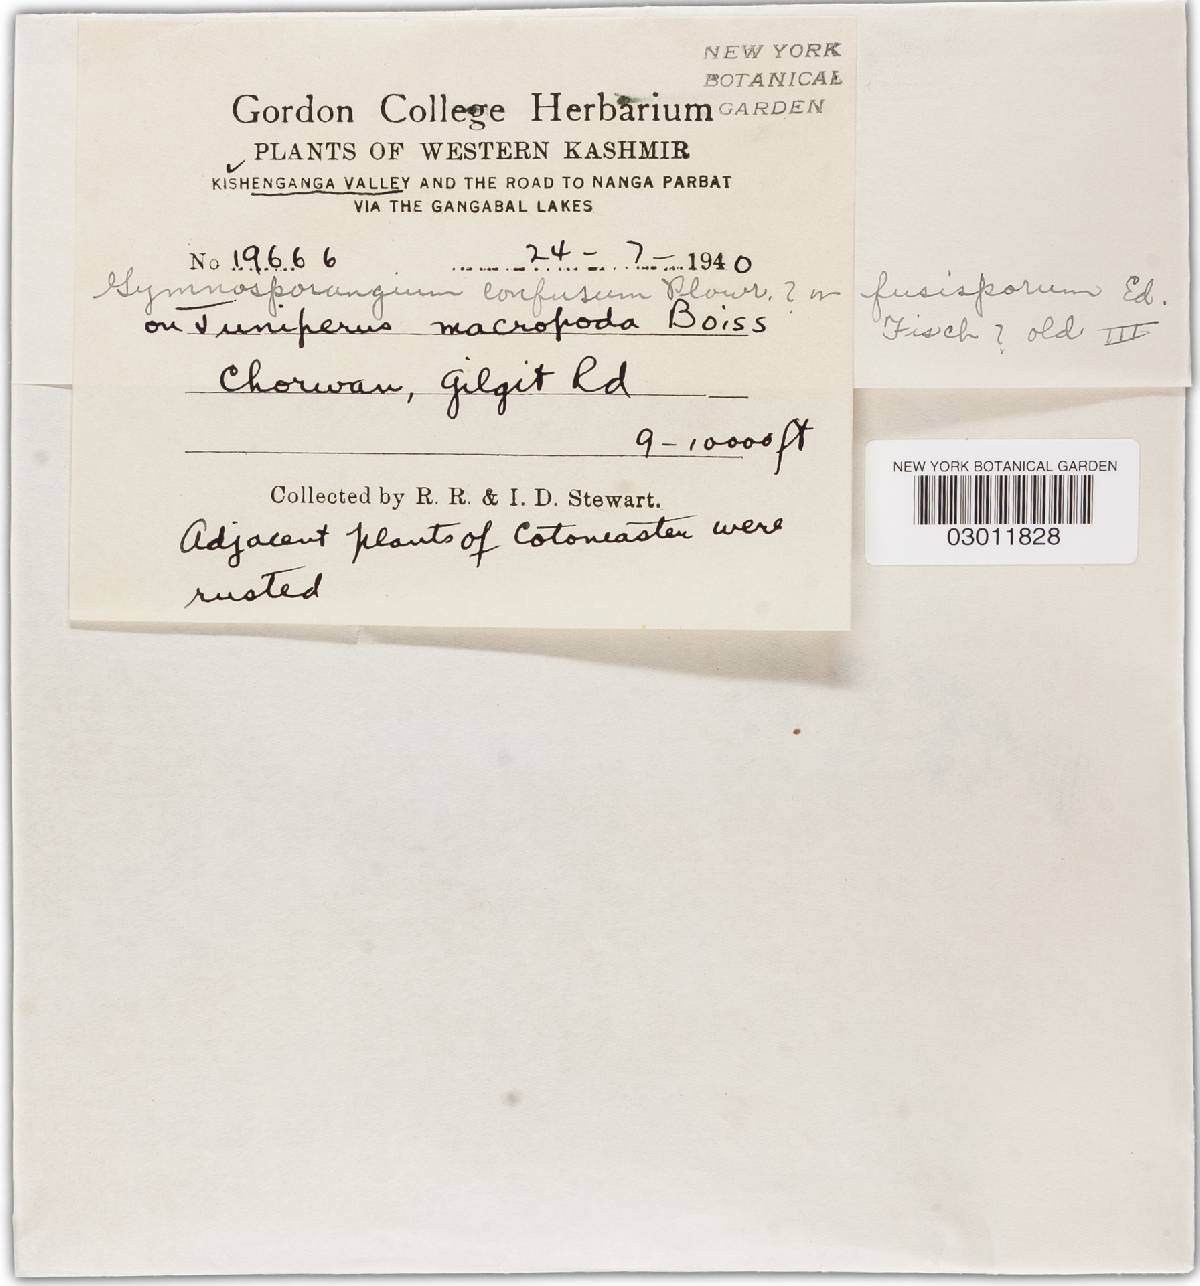 NEW YORK
BOTANICAL
GARDEN
Gordon College Herbarium
PLANTS OF WESTERN KASHMIR
KISHENGANGA VALLEY AND THE ROAD TO NANGA PARBAT
VIA THE GANGABAL LAKES
No 19666 24-7-1940
Gymnosporangium confusum Plowr. ? or fusisporum Ed.
Fisch ? old III
on Juniperus macropoda Boiss
Chorwan, Gilgit Rd
9-10000 ft
Collected by R. R. & I. D. Stewart.
Adjacent plants of Cotoneaster were
rusted
NEW YORK BOTANICAL GARDEN
03011828